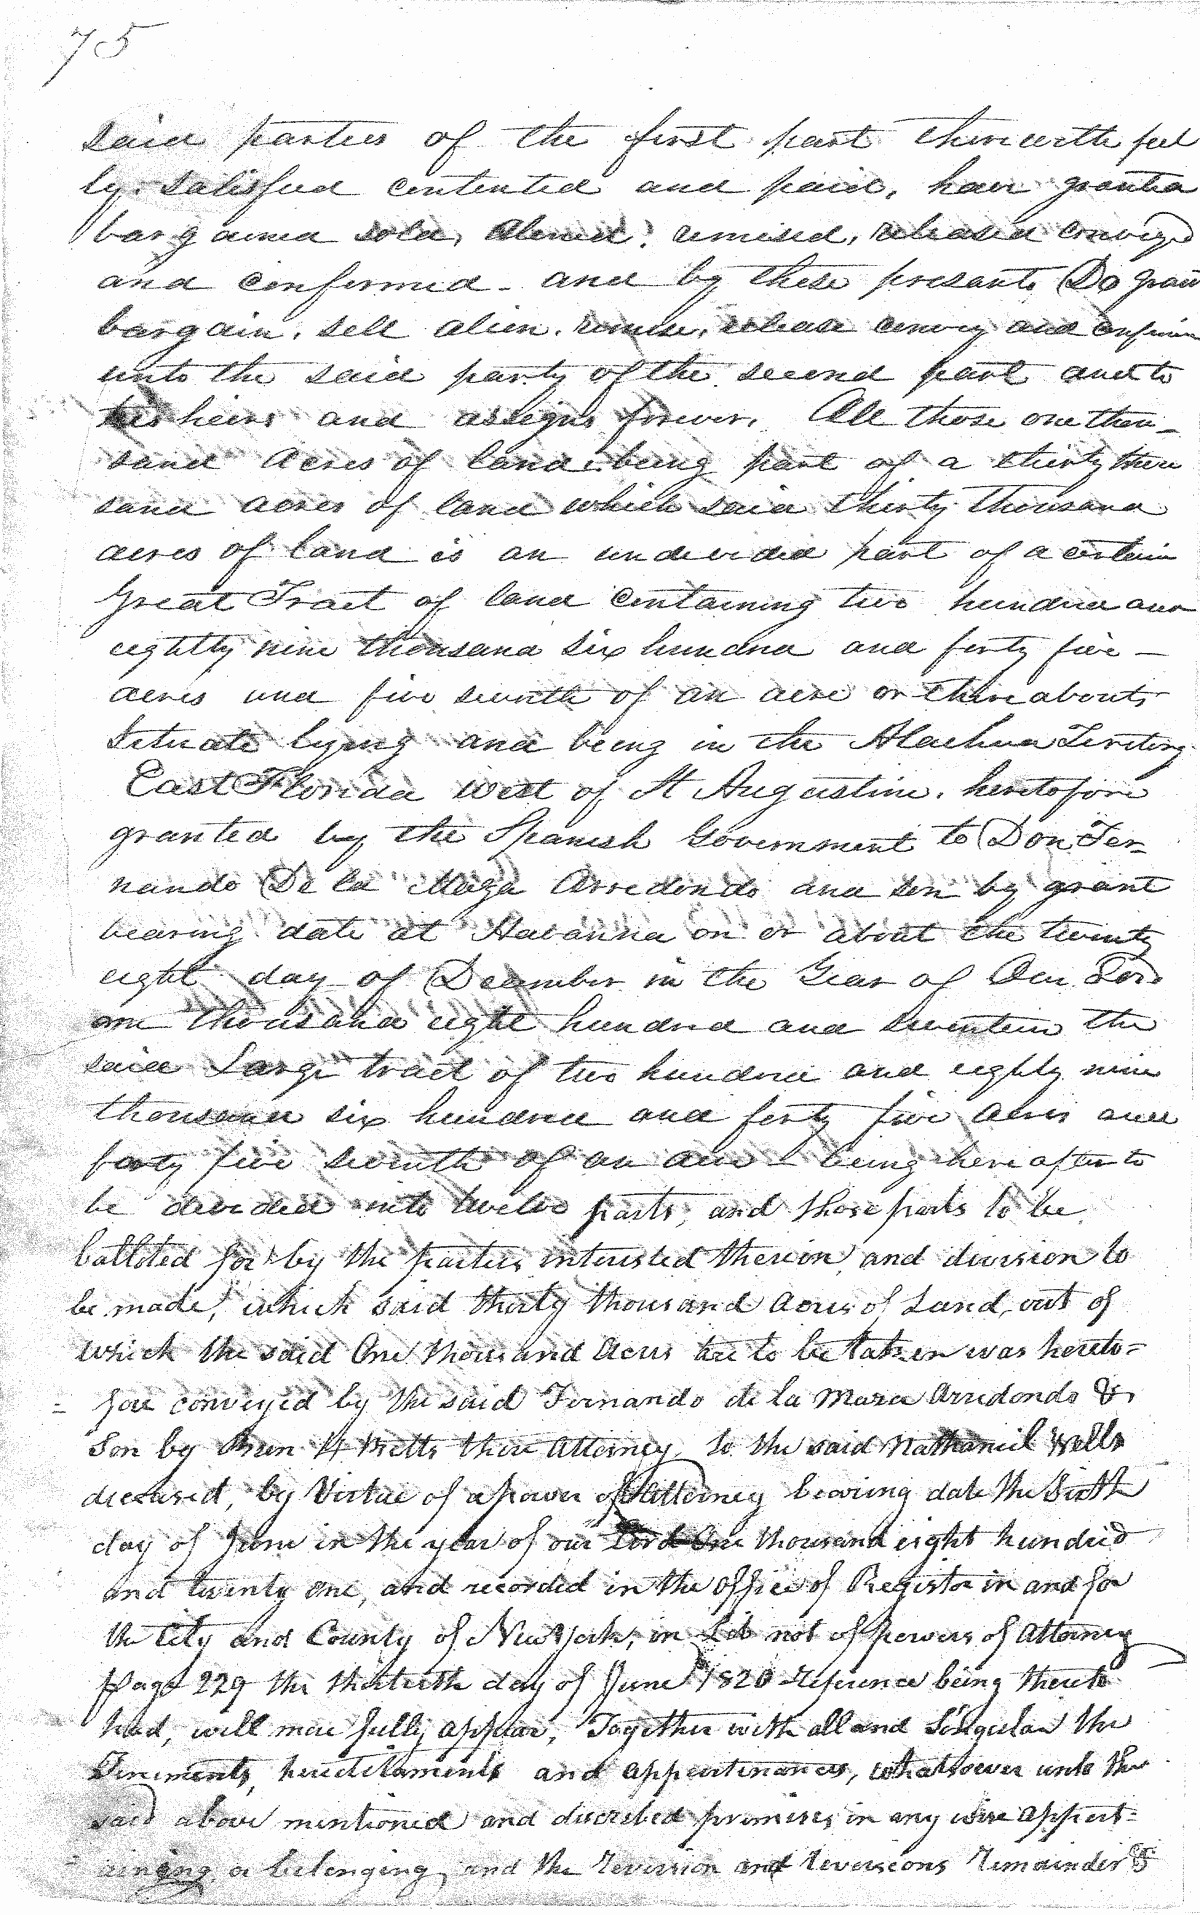 75
said parties of the first part therewith ful
ly satisfied contented and paid, have granted
bargained sold, aliened, remised, released conveyed
and confirmed - and by these presents Do grant
bargain, sell alien, remise, release convey and confirm
unto the said party of the second part and to
his heirs and assigns forever, All those one thou-
sand Acres of land being part of a thirty thou
sand acres of land which said thirty thousand
acres of land is an undivided part of a certain
Great Tract of land containing two hundred and
eightty nine thousand six hundred and forty five -
acres and five seventh of an acre or thereabouts
situate lying and being in the Alachua Territory
East Florida west of St Augustine, heretofore
granted by the Spanish Government to Don Fer-
nando De la Maza Arredondo and son by grant
bearing date at Havanna on or about the twenty
eight day of December in the Year of Our Lord
one thousand eight hundred and seventeen the
said Large tract of two hundred and eighty nine
thousand six hundred and forty five Acres and
forty five seventh of an acre - being hereafter to
be devided into twelve parts, and those parts to be
balloted for by the parties interested therein, and division to
be made, which said thirty thousand Acres of Land, out of
which the said One thousand Acres are to be taken was hereto=
= fore conveyed by the said Fernando de la Maza Arredondo &
Son by H Betts there Attorney, to the said Nathaniel Wells
deceased, by Virtue of a power of Attorney bearing date the Sixth
day of June in the year of our Lord One thousand eight hundred
and twenty one, and recorded in the Office of Register in and for
the City and County of New York, in Lib not of powers of Attorney
Page 229 the thirtieth day of June 1820 reference being thereto
had, will more fully appear, Together with all and Singular the
Tenements, hereditaments and appurtenances, whatsoever unto the
said above mentioned and discribed premises, in any wise appert=
= aining or belonging, and the reversion and reversions remainder &